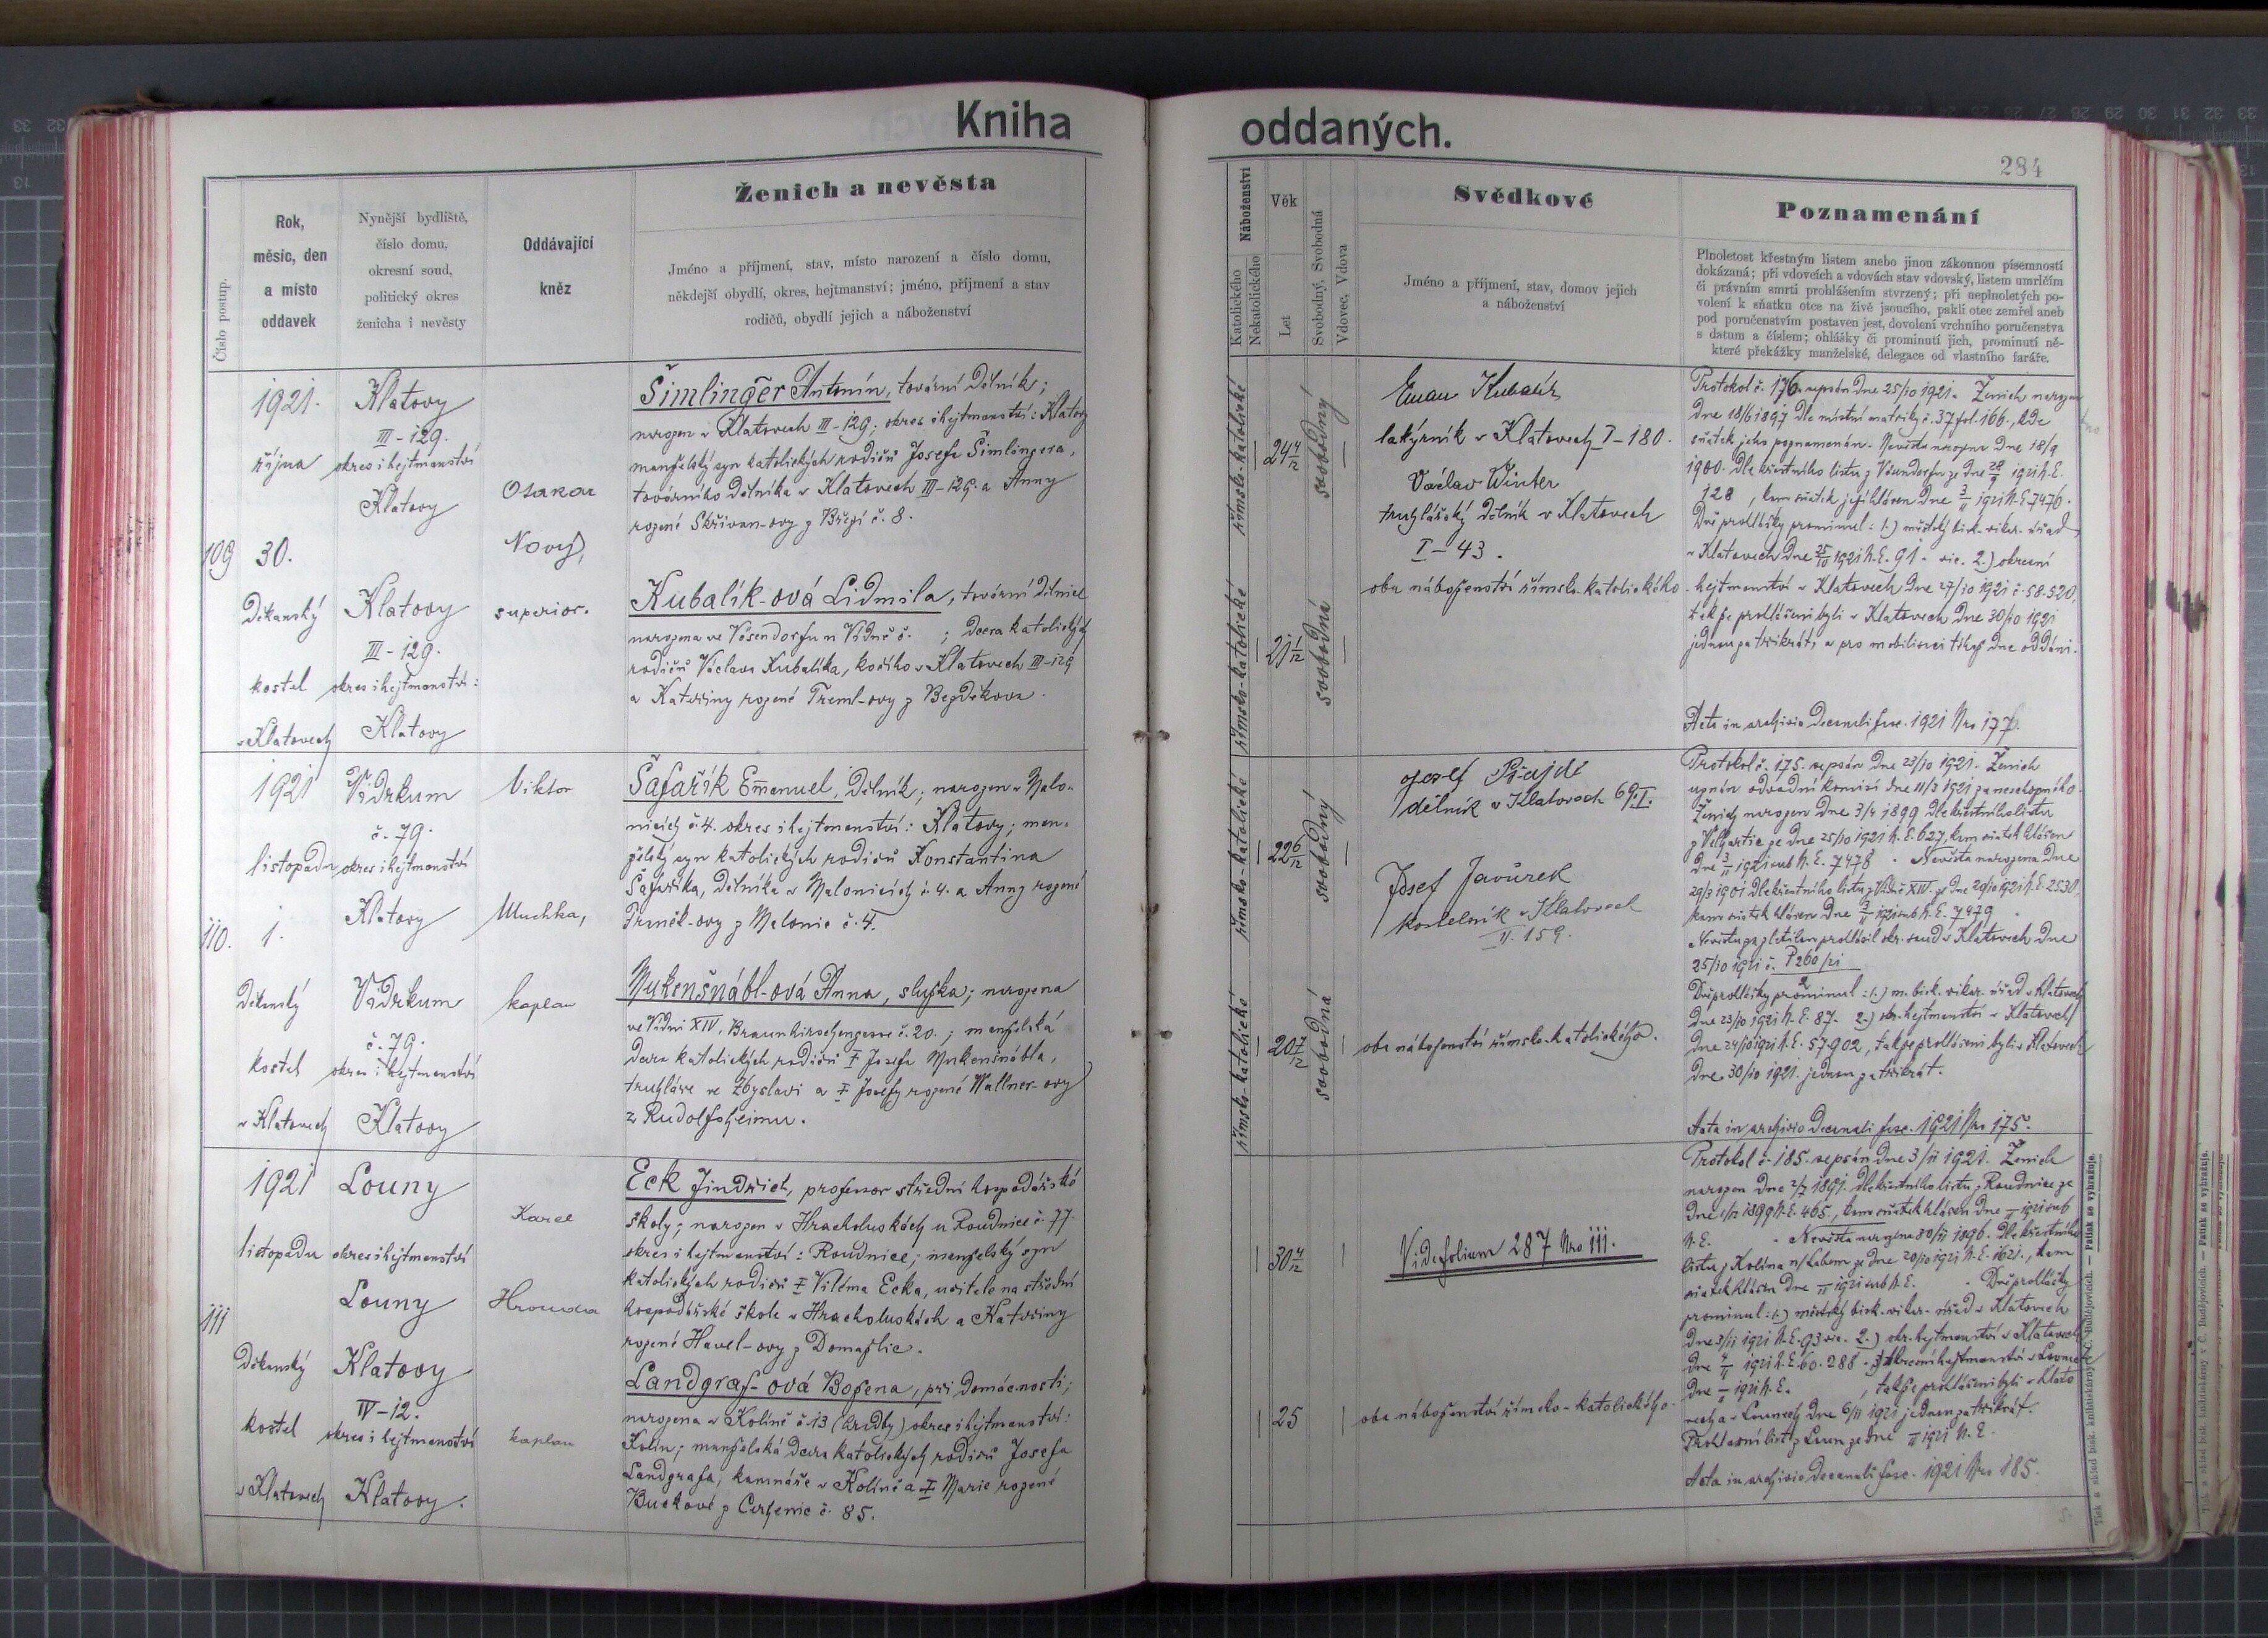 Kniha
oddaných.
284
Číslo postup.
Rok,
měsíc, den
a místo
oddavek
Nynější bydliště,
číslo domu,
okresní soud,
politický okres
ženicha i nevěsty
Oddávající
kněz
Ženich a nevěsta
Jméno a příjmení, stav, místo narození a číslo domu,
někdejší obydlí, okres, hejtmanství; jméno, příjmení a stav
rodičů, obydlí jejich a náboženství
Náboženství
Katolického
Nekatolického
Věk
Let
Svobodný, Svobodná
Vdovec, Vdova
Svědkové
Jméno a příjmení, stav, domov jejich
a náboženství
Poznamenání
Plnoletost křestným listem anebo jinou zákonnou písemností
dokázaná; při vdovcích a vdovách stav vdovský, listem umrlčím
či právním smrti prohlášením stvrzený; při neplnoletých po-
volení k sňatku otce na živě jsoucího, pakli otec zemřel aneb
pod poručenstvím postaven jest, dovolení vrchního poručenstva
s datum a číslem; ohlášky či prominutí jich, prominutí ně-
které překážky manželské, delegace od vlastního faráře.
109
1921.
října
30.
Děkanský
kostel
v Klatovech
Klatovy
III-129.
okres i hejtmanství
Klatovy
Klatovy
III-129.
okres i hejtmanství:
Klatovy
Otakar
Nový,
superior.
Šimlinger Antonín, tovární dělník;
narozen v Klatovech III-129; okres i hejtmanství: Klatovy
manželský syn katolických rodičů Josefa Šimlingera,
továrního dělníka v Klatovech III-129. a Anny
rozené Skřivan-ovy z Březí č. 8.
Kubalík-ová Lidmila, tovární dělnice
narozena ve Vösendorfu u Vídně č. ; dcera katolických
rodičů Václava Kubalíka, kočího v Klatovech III-129
a Kateřiny rozené Treml-ovy z Bezděkova.
římsko-katolické
24 4/12
svobodný
římsko-katolické
21 1/12
svobodná
Eman Kubalík
lakýrník v Klatovech I-180.
Václav Winter
truhlářský dělník v Klatovech
I-43.
oba náboženství římsko-katolického
Protokol č. 176. sepsán dne 25/10 1921. Ženich narozen
dne 18/6 1897 dle místní matriky č. 37 fol. 166., kde
sňatek jeho poznamenán. Nevěsta narozena dne 18/9
1900. dle křestního listu z Vösendorfu ze dne 28/9 1921 N.E.
128 , kam sňatek její hlášen dne 3/11 1921 N.E. 7476.
Dvě prohlášky prominul: 1.) městský bisk. vikar. úřad
v Klatovech dne 25/10 1921 N.E. 91. vic. 2.) okresní
hejtmanství v Klatovech dne 27/10 1921 č. 58.520,
takže prohlášeni byli v Klatovech dne 30/10 1921
jednou za třikrát, a pro mobilisaci téhož dne oddáni.
Acta in archivio Decanali fasc. 1921 Nro 177.
110.
1921
listopadu
1.
Děkanský
kostel
v Klatovech
Vídrkum
č. 79.
okres i hejtmanství
Klatovy
Vídrkum
č. 79.
okres i hejtmanství
Klatovy
Viktor
Muchka,
kaplan
Šafařík Emanuel, dělník; narozen v Malo-
nicích č. 4. okres i hejtmanství: Klatovy; man-
želský syn katolických rodičů Konstantina
Šafaříka, dělníka v Malonicích č. 4. a Anny rozené
z Malonic č. 4.
Mukenšnábl-ová Anna, služka; narozena
ve Vídni XIV, Braunhirschengasse č. 20.; manželská
dcera katolických rodičů † Josefa Mukenšnábla,
truhláře ve Zbyslavi a † Josefy rozené Wallner-ovy
z Rudolfsheimu.
římsko-katolické
22 6/12
svobodný
římsko-katolické
20 7/12
svobodná
Josef
dělník v Klatovech 69 I.
Josef Javůrek
kostelník v Klatovech
II. 159.
oba náboženství římsko-katolického.
Protokol č. 175. sepsán dne 23/10 1921. Ženich
uznán odvodní komisí dne 11/3 1921 za neschopného.
Ženich narozen dne 3/4 1899 dle křestního listu
z Velhartic ze dne 25/10 1921 N.E. 627, kam sňatek hlášen
dne 3/11 1921 sub N.E. 7478 . Nevěsta narozena dne
29/3 1901 dle křestního listu z Vídně XIV. ze dne 20/10 1921 N.E. 2530,
kam sňatek hlášen dne 3/11 1921 sub N.E. 7479 .
Nevěstu za zletilou prohlásil okr. soud v Klatovech dne
25/10 1921 č. P 260/21
2
Dvě prohlášky prominul: 1.) m. bisk. vikar. úřad v Klatovech
dne 23/10 1921 N.E. 87. 2.) okr. hejtmanství v Klatovech
dne 24/10 1921 N.E. 57.902, takže prohlášeni byli v Klatovech
dne 30/10 1921. jednou za třikrát.
Acta in archivio Decanali fasc. 1921 Nro 175.
111
1921
listopadu
Děkanský
kostel
v Klatovech
Louny
okres i hejtmanství
Louny
Klatovy
IV-12.
okres i hejtmanství
Klatovy.
Karel
Hrouda
kaplan
Eck Jindřich, professor střední hospodářské
školy; narozen v Hracholuskách u Roudnice č. 77.
okres i hejtmanství: Roudnice; manželský syn
katolických rodičů † Viléma Ecka, učitele na střední
hospodářské škole v Hracholuskách a Kateřiny
rozené Havel-ovy z Domažlic.
Landgraf-ová Božena, při domácnosti;
narozena v Kolíně č. 13 (hradby) okres i hejtmanství:
Kolín; manželská dcera katolických rodičů Josefa
Landgrafa, kamnáře v Kolíně a † Marie rozené
z Cerhenic č. 85.
30 4/12
25
Vide folium 287 Nro 111.
oba náboženství římsko-katolického.
Protokol č. 185. sepsán dne 3/11 1921. Ženich
narozen dne 2/7 1891. dle křestního listu z Roudnice ze
dne 1/12 1899 N.E. 465., kam sňatek hlášen dne /11 1921 sub
N.E. . Nevěsta narozena 30/11 1896. dle křestního
listu z Kolína n/Labem ze dne 20/10 1921 N.E. 1621., kam
sňatek hlášen dne /11 1921 sub N.E. . Dvě prohlášky
prominul: 1.) městský bisk. vikar. úřad v Klatovech
dne 3/11 1921 N.E. 93 vic. 2.) okr. hejtmanství v Klatovech
dne 4/11 1921 N.E. 60.288. 3.) Okresní hejtmanství v Lounech
dne /11 1921 N.E. , takže prohlášeni byli v Klato-
vech a v Lounech dne 6/11 1921 jednou za třikrát.
Prohlašní list z Loun ze dne /11 1921 N.E.
Acta in archivio Decanali fasc. 1921 Nro 185.
Tisk a sklad bisk. knihtiskárny v Č. Budějovicích. — Patisk se vyhražuje.
Tisk a sklad bisk. knihtiskárny v Č. Budějovicích. — Patisk se vyhražuje.